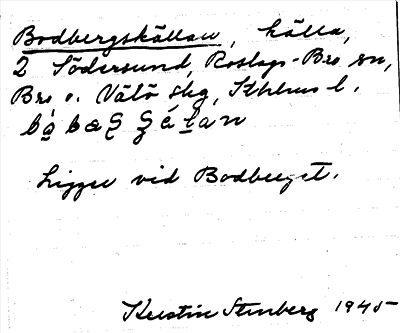 Bodbergskällan, källa,
2 Södersund, Roslags-Bro sn,
Bro o. Vätö skg, Sthlms l.
Ligger vid Bodberget.
Kerstin Stenberg 1945